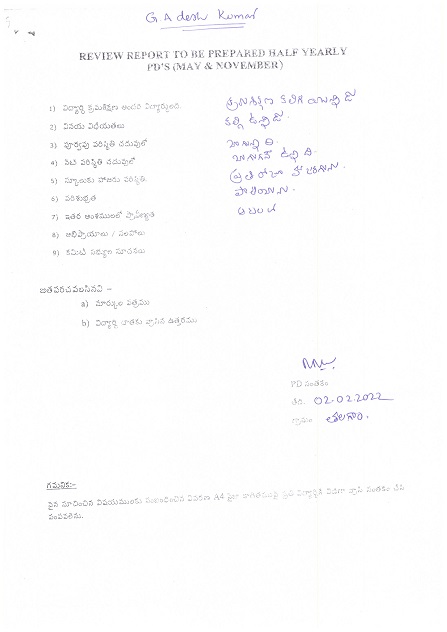 G Adesh Kumar
REVIEW REPORT TO BE PREPARED HALF YEARLY
PD'S (MAY & NOVEMBER)
1) విద్యార్థి క్రమశిక్షణ
క్రమశిక్షణ కలిగి యున్నాడు
2) వినయ విధేయతలు
కల్గి ఉన్నాడు.
3) పూర్వపు పరిస్థితి చదువులో
బాగున్నది.
4) నేటి పరిస్థితి చదువులో
బాగుగానే ఉన్నది
5) స్కూలుకు హాజరు పరిస్థితి
ప్రతి రోజు
6) పరిశుభ్రత
7) ఇతర అంశములలో ప్రావీణ్యత
8) అభిప్రాయాలు / సలహాలు
9) కమిటి సభ్యుల సూచనలు
జతపరచవలసినవి :-
a) మార్కుల పత్రము
b) విద్యార్థి దాతకు వ్రాసిన ఉత్తరము
సంతకం
తేది. 02.02.2022
గ్రామం
గమనిక:-
పైన సూచించిన విషయములకు సంబంధించిన వివరణ A4 సైజు కాగితముపై ప్రతి విద్యార్థికి విడిగా వ్రాసి సంతకం చేసి
పంపవలెను.